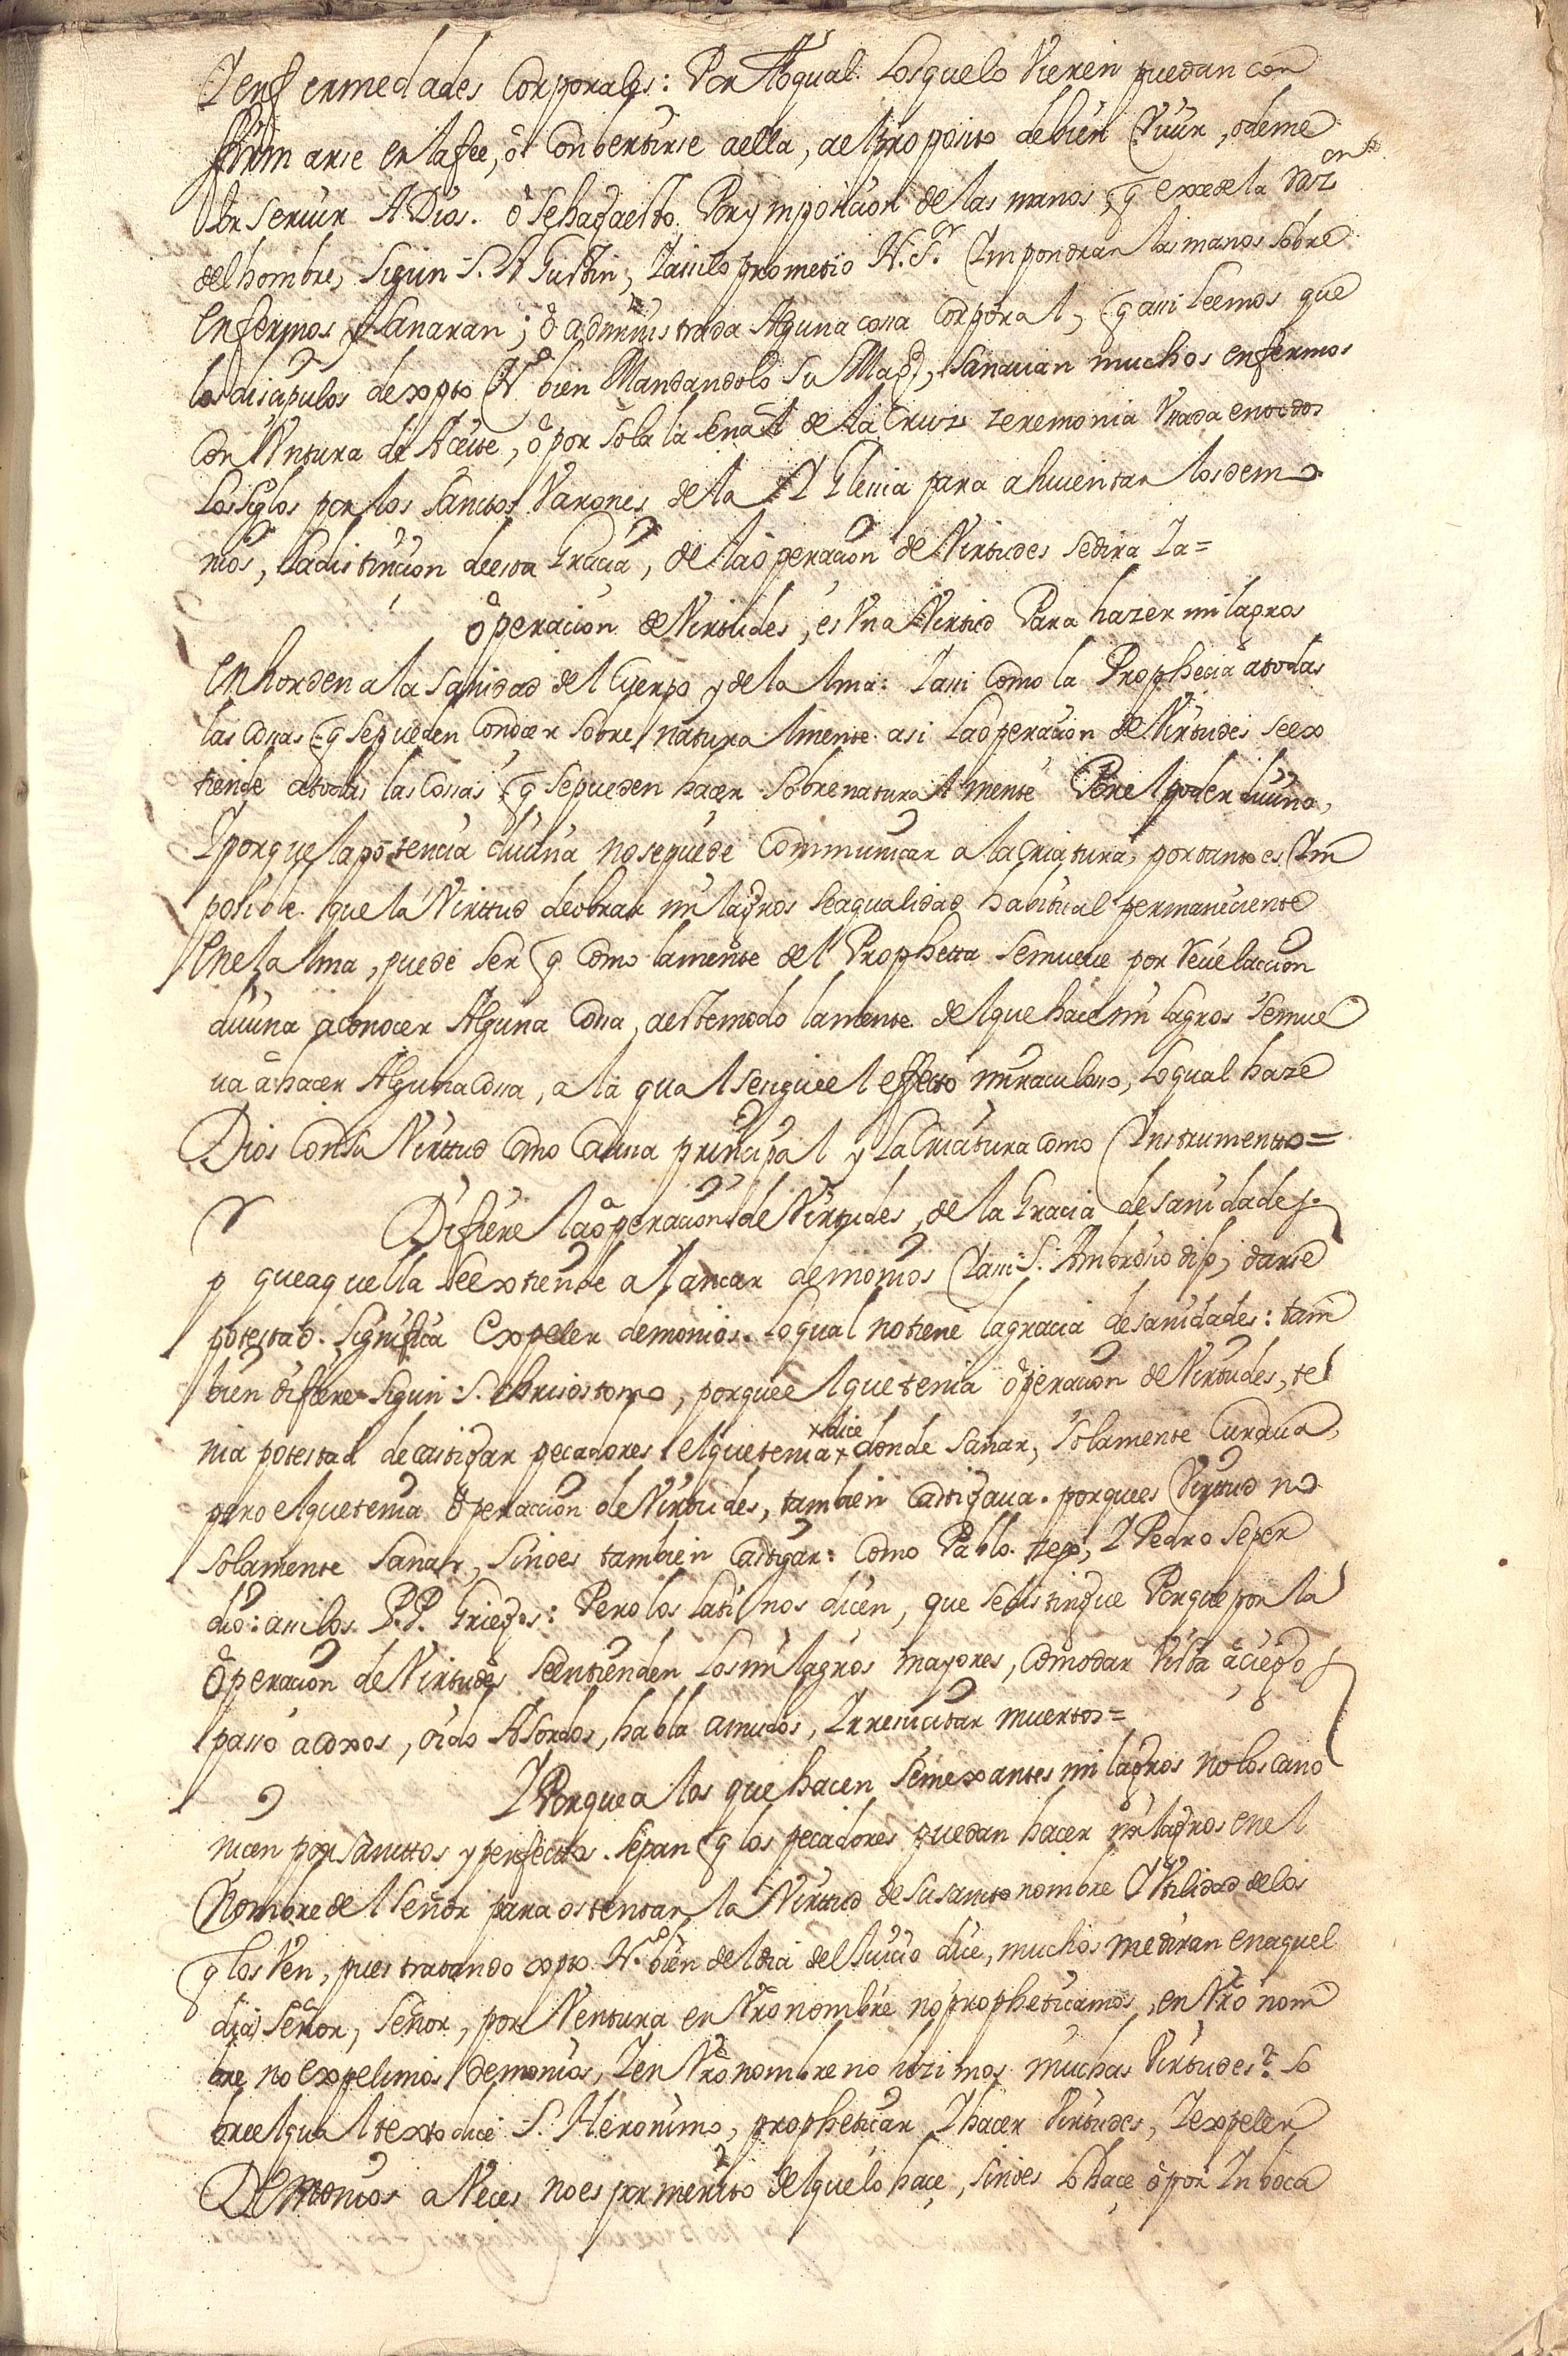 Y enfermedades Corporales: Por lo qual los que lo Vieren puedan con
firmarse en la fee, ò Conbertirse a ella, ael proposito de bien Viuir, o de me
Jor seruir A Dios. ò se haga esto Por ymposicion de las manos, q excede la Raz on
del hombre, Segun S. AGustin; Y assi lo prometio N. Sr. Impondran las manos sobre
Enfermos y Sanaran; ò administrada Alguna cossa Corporal, q assi leemos que
los discipulos de xpto Nº bien Mandandolo Su Magd, Sanauan muchos enfermos
Con Vntura de Aceite, ò por Sola la Señal de la Cruz zeremonia Vsada en todos
Los Siglos por los Sanctos Varones de la YGlesia para ahuientar los demo
nios, La distincion de esta Gracia, de la operacion de Virtudes se dira Ya=
òperacion de Virtudes, es Vna Virtud Para hazer milagros
En horden a la Sanidad del Cuerpo y de la Alma: Y assi Como la Prophecia a todas
las Cossas q se pueden Conocer Sobre naturalmente asi La operacion de Virtudes se ex
tiende a todas las Cossas q se pueden hacer Sobrenaturalmente Por el poder diuino,
Y porque la potencia diuina no se puede Communicar a la Criatura, por tanto es Im
posible que la Virttud de obrar milagros sea qualidad habitual permaneciente
En el alma, puede Ser q Como la mente del Prophetta se mueue por Reuelaccion
diuina a conocer Alguna Cossa, a este modo la mente del que hace milagros Se mue
ua à hacer Alguna Cossa, a la qual se sigue el effecto miraculoso, Lo qual haze
Dios Con su Virttud Como Caussa principal y La Criatura como Instrumentto=
Difiere la operacion de Virtudes, de la Gracia de sanidades.
p que aquella se extiende a lancar demonios Y assi S. Ambrosio dijo, darse
potestad. Significa Expeler demonios. Lo qual no tiene la gracia de sanidades: tam
bien difiere Segun S. Chrisostomo, porque el que tenia òperacion de Virtudes, te
nia potestad de castigar pecadores el que tenia x donde Sanar, Solamente Curaua,
x dice
pero el que tenia òperaccion de Virtudes, tambien Castigaua. porque es Virttud no
Solamente Sanar, Sino es tambien Castigar: Como Pablo
Y Pedro
dio: assi los P.P. Griegos: Pero los Latinos dicen, que se distingue Porque por la
òperacion de Virtudes Se entienden Los milagros mayores, Como dar Vista à ciegos
passo a coxos, oido A Sordos, habla a mudos, Y rresucitar muertos=
Y Porque a los que hacen Semexantes milagros no los cano
nicen por Sanctos y perfectos. Sepan q los pecadores puedan hacer milagros en el
Nombre del Señor para ostentar la Virttud de su Santo nombre O Vtilidad de los
q los Ven, pues tratando xpto Nº bien del dia del Juicio dice, muchos me diran en aquel
dia) Señor, Señor, por Ventura en Vro nombre no propheticamos, en Vro nom
bre no expelimos demonios, Y en Vro nombre no hizimos muchas Virtudes? So
bre el qual texto dice S. Heronimo, propheticar, Y hacer Virtudes, Y expeler
Demonios a Veces no es por merito del que lo hace, Sino es Lo hace ò por Inboca